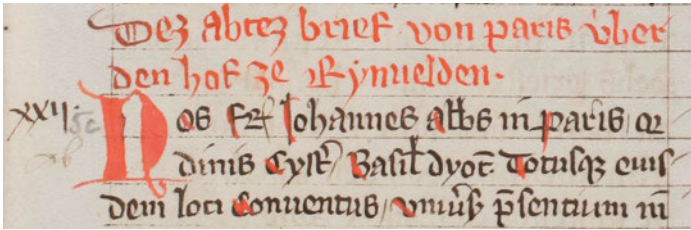 Dez abtez brief von paris vber
den hof ze Rynuelden.
XXII. Nos fr̄ Johannes abb̄s in paris or
dinis Cyst̄ Basil̄ dyoc̄ Totusqꝫ eius
dem loci Conuentus vniu̓s̄ p̄sentium in